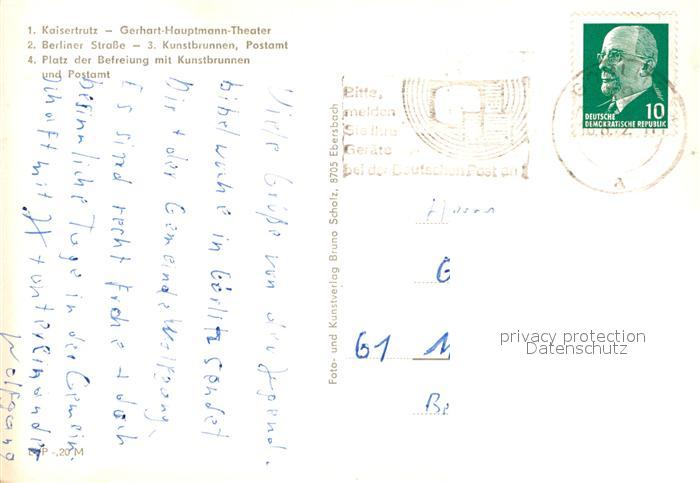 1. Kaisertrutz – Gerhart-Hauptmann-Theater
2. Berliner Straße – 3. Kunstbrunnen, Postamt
4. Platz der Befreiung mit Kunstbrunnen
und Postamt
Viele Grüße von der Jugend-
bibelwoche in Görlitz sendet
Dir + der Gemeinde Wolfgang.
Es sind recht frohe + doch
besinnliche Tage in der Gemein-
schaft mit + untereinander
Wolfgang
EVP -,20 M
Foto- und Kunstverlag Bruno Scholz, 8705 Ebersbach
Bitte,
melden
Sie Ihre
Geräte
bei der Deutschen Post an
DEUTSCHE
DEMOKRATISCHE REPUBLIK
10
a
Herrn
G
61
Be
privacy protection
Datenschutz